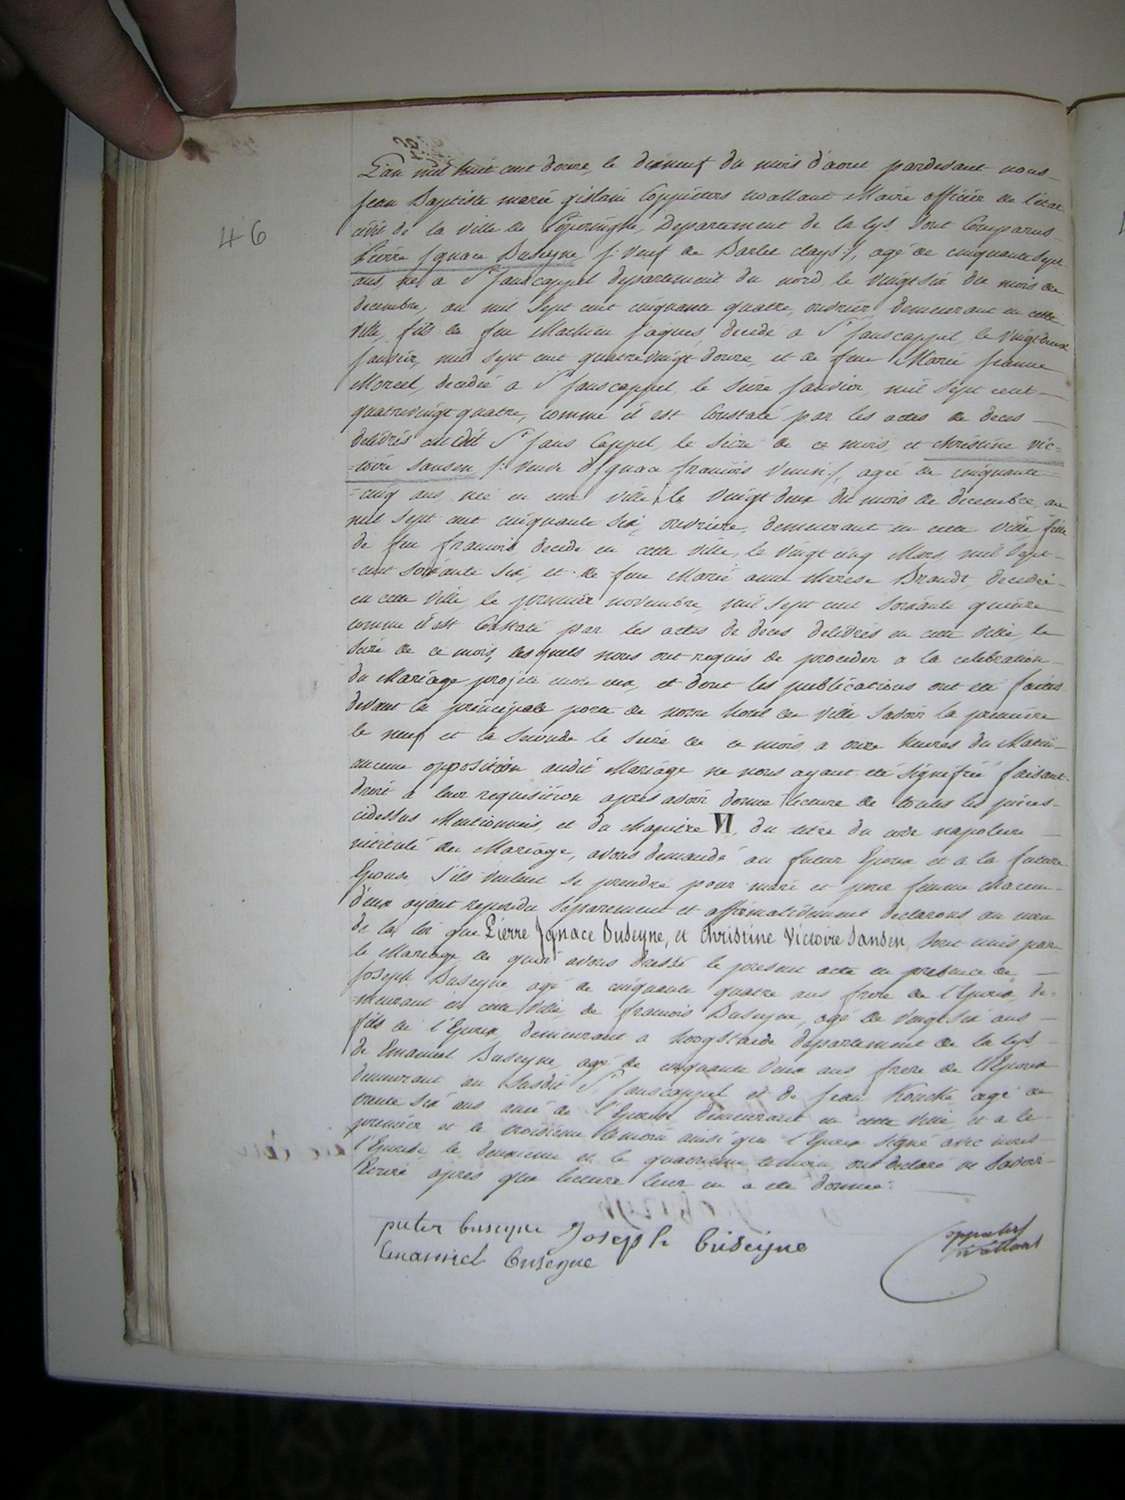 L'an mil huit cent douze, le dixneuf du mois d'aout pardevant nous
46
Jean Baptiste marie gislain Coppieters wallant Maire officier de l'état
civil de la ville de Poperinghe, Departement de la lys, sont Comparus
Pierre Ignace Buseyne /: veuf de Barbe clays :/, agé de cinquante sept
ans, né a St Janscappel departement du nord le vingt six du mois de
decembre, an mil sept cent cinquante quatre, ouvrier demeurant en cette
ville, fils de feu Mathieu Jaques, decedé a St Janscappel, le vingt deux
janvier, mil sept cent quatrevingt douze, et de feue Marie Jeanne
Moreel, decedée a St Janscappel, le seize janvier, mil sept cent
quatrevingt quatre, comme il est Constaté par les actes de deces
delivrés audit St Jans Cappel, le seize de ce mois, et christine vic=
=toire sansen /: veuve d'Ignace francois :/, agée de cinquante
=cinq ans, née en cette ville, le vingt deux du mois de decembre, an
mil sept cent cinquante six, ouvrière, demeurant en cette ville, fille
de feu francois, decedé en cette ville, le vingt cinq Mars, mil sept
=cent soixante six, et de feue Marie anne therese Brandt, decedée
en cette ville, le premier novembre, mil sept cent soixante quinze
comme il est Constaté par les actes de deces delivrés en cette ville, le
seize de ce mois, lesquels nous ont requis de proceder a la celebration
du Mariage projeté entre eux, et dont les publications ont été faites
devant la principale porte de notre hotel de ville savoir la première
le neuf et la seconde le seize de ce mois a onze heures du Matin
aucune opposition audit Mariage ne nous ayant été signifiée faisant
droit a leur requisition apres avoir donné lecture de toutes les pièces
cidessus Mentionnées, et du chapitre VI, du titre du code napoleon
intitulé du Mariage, avons demandé au futur Epoux et a la future
Epouse, s'ils veulent se prendre pour mari et pour femme chacun
d'eux ayant repondu separement et affirmativement declarons au nom
de la loi que Pierre Ignace Buseyne, et Christine Victoire Sansen, sont unis par
le Mariage de quoi avons dressé le present acte en presence de
Joseph Buseyne agé de cinquante quatre ans frere de l'Epoux, de=
=meurant en cette ville, de francois Buseyne, agé de vingt six ans
fils de l'Epoux demeurant a hoogstaede departement de la lys
de Emanuel Buseyne, agé de cinquante deux ans frere de l'Epoux
demeurant au susdit St Janscappel et de Jean agé de
trente six ans ami de l'Epoux demeurant en cette ville, et a le
premier et le troisieme temoin ainsi que l'Epoux signé avec nous
l'Epouse le deuxieme et le quatrieme temoin ont declaré ne savoir
Ecrire après que lecture leur en a été donnée.
pieter buseyne Joseph buseijne
Emanuel buseyne
Coppieters
Wallant